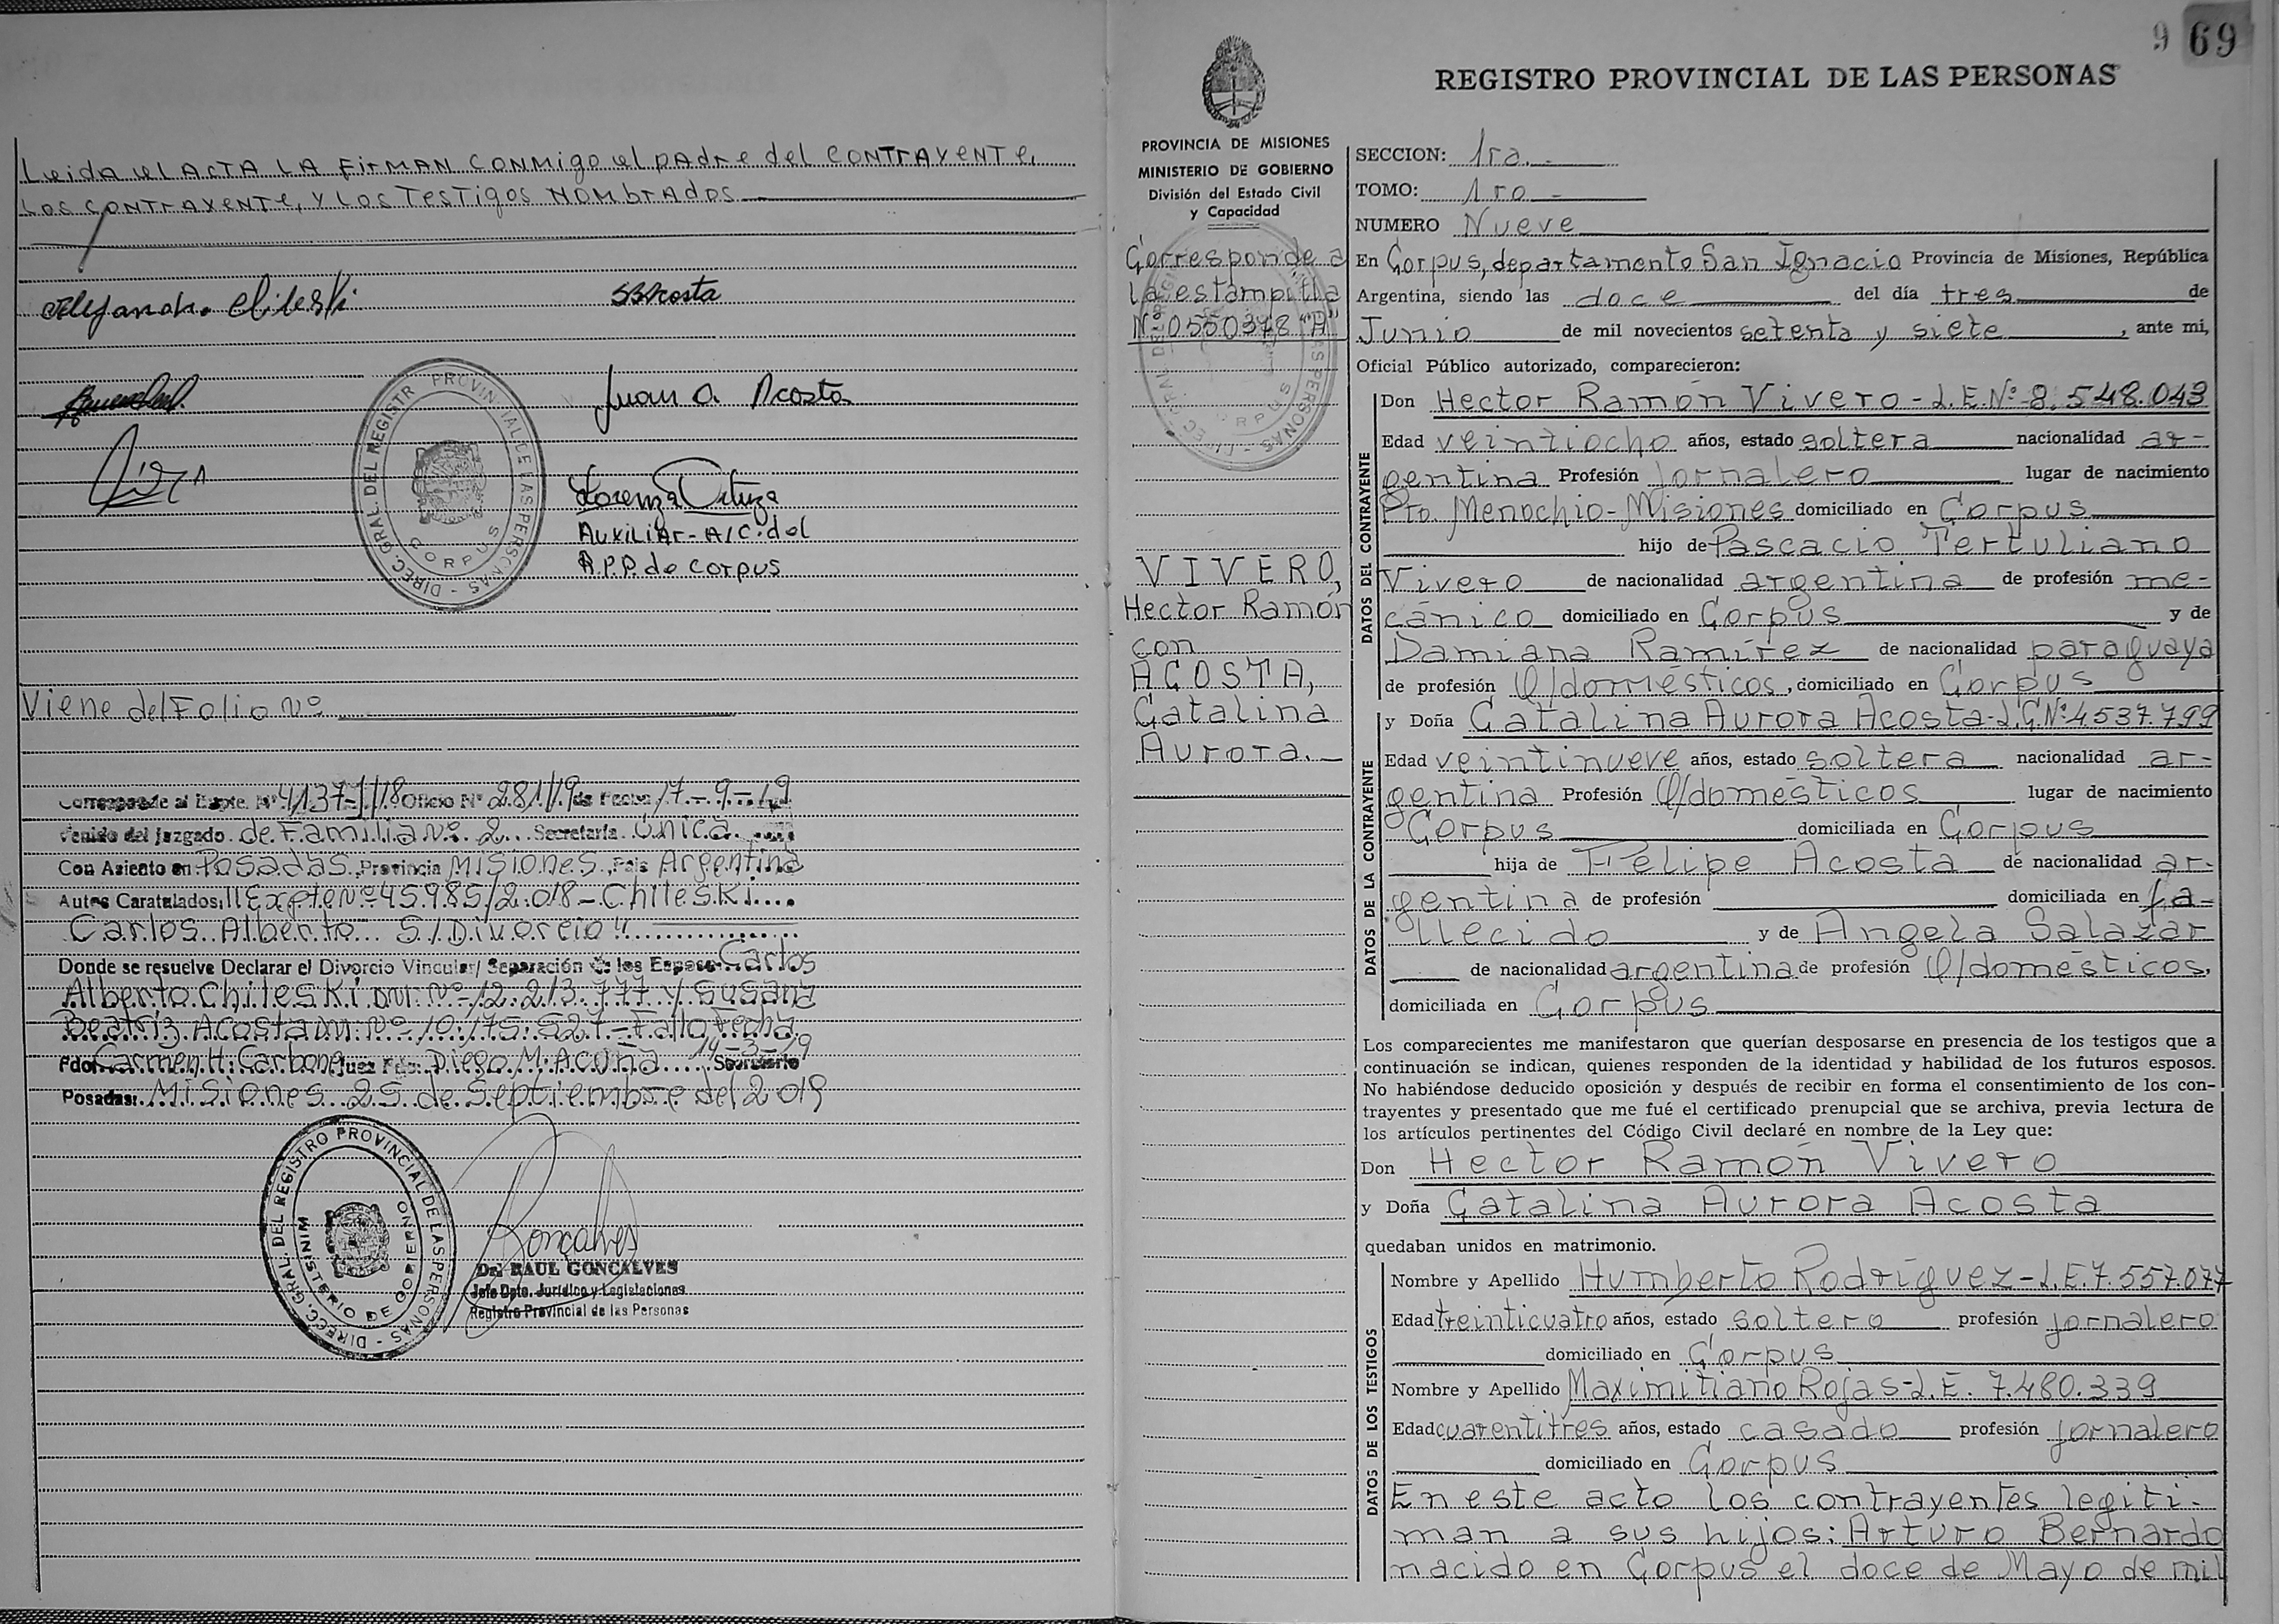 Leida el ACTA LA FirMAN CONMigo el pAdre del CONTRAYENTE,
Los CONTRAYENTE, Y Los TesTigos NOMbrAdos
SBAcosta
Juan A. Acosta
DIREC. GRAL. DEL REGISTR PROVINCIAL DE LAS PERSONAS
CORPUS
Lorenza Ortega
AUXILIAr-A/C. del
R.P.P. de Corpus
Viene del Folio Nº
Corresponde al Expte. Nº 4137-J/18 Oficio Nº 281/19 de Fecha 17-9-19
venido del juzgado de Familia Nº 2 Secretaría Única
Con Asiento en Posadas, Provincia Misiones, País Argentina
Autos Caratulados, "Expte Nº 45985/2.018 - Chileski
Carlos Alberto S/Divorcio"
Donde se resuelve Declarar el Divorcio Vincular/ Separación de los Esposos Carlos
Alberto Chileski DNI: Nº 12.213.777 y Susana
Beatriz Acosta M: Nº 10.175.527 - Fallo Fecha
14-3-19
Fdo. Carmen H. Carbone Juez Fdo: Diego M. Acuña Secretario
Posadas: Misiones 25 de Septiembre del 2019
DIREC. GRAL. DEL REGISTRO PROVINCIAL DE LAS PERSONAS
MINISTERIO DE GOBIERNO
Goncalves
Dr. RAUL GONCALVES
Jefe Dpto. Jurídico y Legislaciones
Registro Provincial de las Personas
9 69
REGISTRO PROVINCIAL DE LAS PERSONAS
PROVINCIA DE MISIONES
MINISTERIO DE GOBIERNO
División del Estado Civil
y Capacidad
Corresponde a
la estampilla
Nº 0550378 "A"
VIVERO,
Hector Ramón
con
ACOSTA,
Catalina
Aurora.-
SECCION: 1ra.-
TOMO: 1ro-
NUMERO Nueve
En Corpus, departamento San Ignacio Provincia de Misiones, República
Argentina, siendo las doce del día tres de
Junio de mil novecientos setenta y siete, ante mi,
Oficial Público autorizado, comparecieron:
DATOS DEL CONTRAYENTE
Don Hector Ramón Vivero - L.E. Nº 8.548.043
Edad veintiocho años, estado soltera nacionalidad ar-
gentina Profesión Jornalero lugar de nacimiento
Pto. Menochio-Misiones domiciliado en Corpus
hijo de Pascacio Tertuliano
Vivero de nacionalidad argentina de profesión me-
cánico domiciliado en Corpus y de
Damiana Ramírez de nacionalidad paraguaya
de profesión Q/domésticos, domiciliado en Corpus
DATOS DE LA CONTRAYENTE
y Doña Catalina Aurora Acosta-L.C. Nº 4.537.799
Edad veintinueve años, estado soltera nacionalidad ar-
gentina Profesión Q/domésticos lugar de nacimiento
Corpus domiciliada en Corpus
hija de Felipe Acosta de nacionalidad ar-
gentina de profesión domiciliada en fa-
llecido y de Angela Salazar
de nacionalidad argentina de profesión Q/domésticos,
domiciliada en Corpus
Los comparecientes me manifestaron que querían desposarse en presencia de los testigos que a
continuación se indican, quienes responden de la identidad y habilidad de los futuros esposos.
No habiéndose deducido oposición y después de recibir en forma el consentimiento de los con-
trayentes y presentado que me fué el certificado prenupcial que se archiva, previa lectura de
los artículos pertinentes del Código Civil declaré en nombre de la Ley que:
Don Hector Ramón Vivero
y Doña Catalina Aurora Acosta
quedaban unidos en matrimonio.
DATOS DE LOS TESTIGOS
Nombre y Apellido Humberto Rodríguez-L.E. 7.557.077
Edad treinticuatro años, estado soltero profesión jornalero
domiciliado en Corpus
Nombre y Apellido Maximiliano Rojas-L.E. 7.480.339
Edad cuarentitres años, estado casado profesión jornalero
domiciliado en Corpus
En este acto los contrayentes legiti-
man a sus hijos: Arturo Bernardo
nacido en Corpus el doce de Mayo de mil